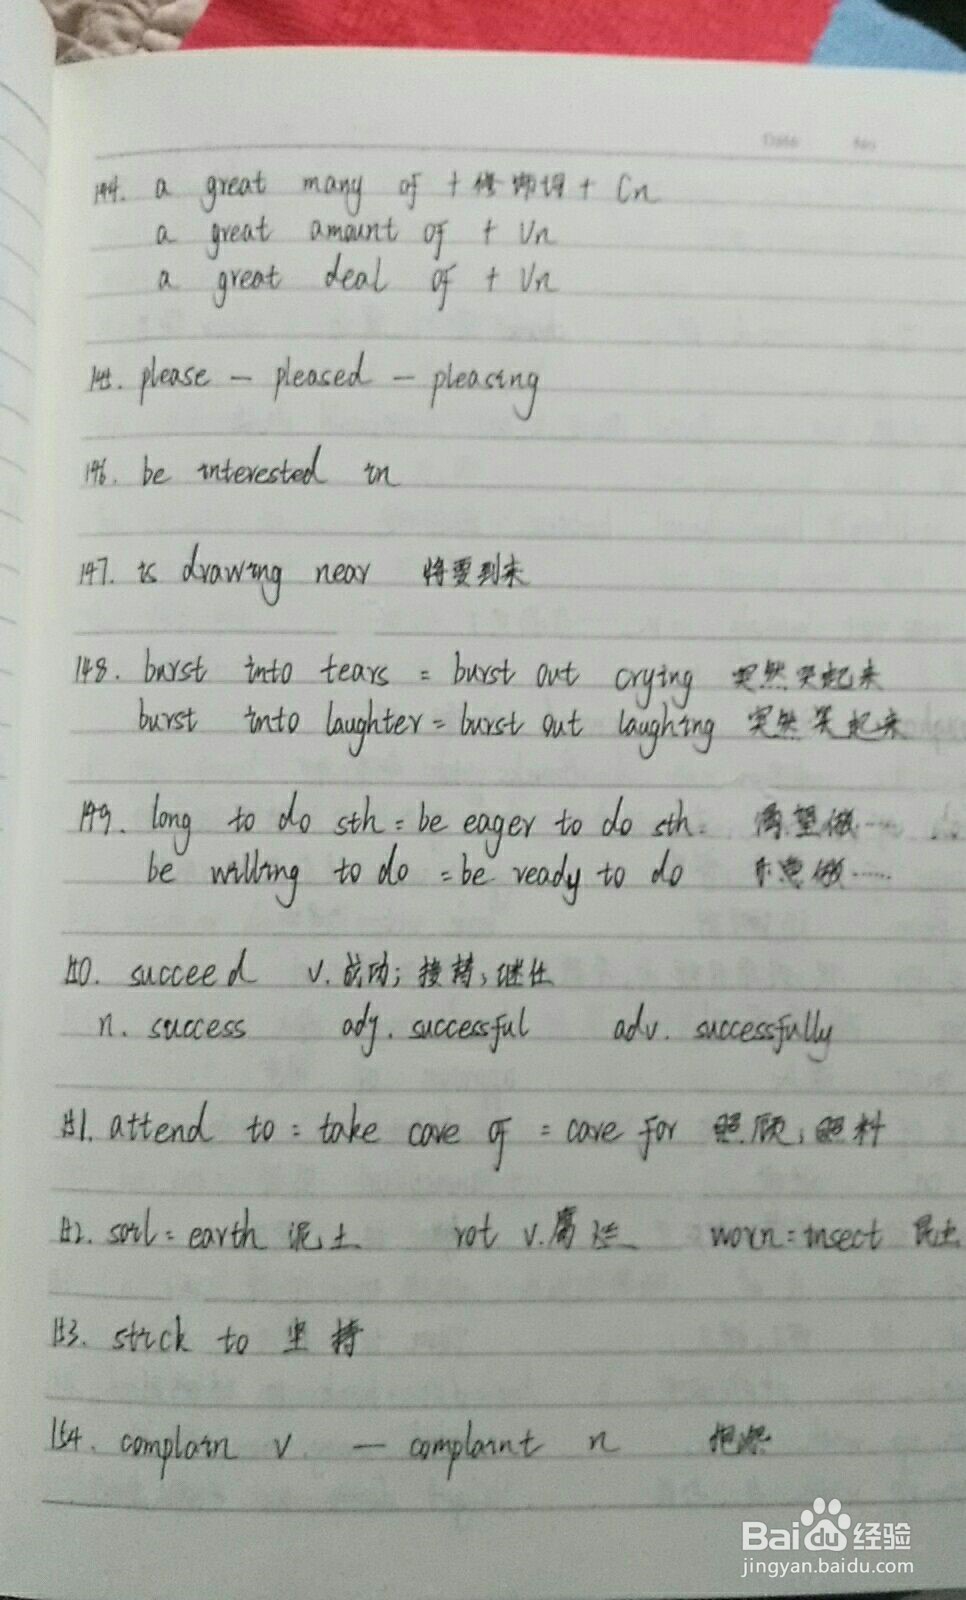 Date No
144. a great many of + 修饰词 + Cn
a great amount of + Un
a great deal of + Un
145. please — pleased — pleasing
146. be interested in
147. is drawing near 将要到来
148. burst into tears = burst out crying 突然哭起来
burst into laughter = burst out laughing 突然笑起来
149. long to do sth = be eager to do sth. 渴望做……
be willing to do = be ready to do 乐意做……
150. succeed v. 成功; 接替, 继任
n. success adj. successful adv. successfully
151. attend to = take care of = care for 照顾, 照料
152. soil = earth 泥土 rot v. 腐烂 worn = insect 昆虫
153. stick to 坚持
154. complain v. — complaint n 抱怨
Baidu 经验
jingyan.baidu.com